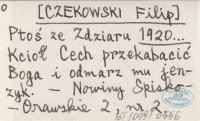 [CZEKOWSKI Filip]
Ptoś ze Zdziaru 1920...
Kcioł Cech przekabacić
Boga i odmarz mu jen-
zyk. — Nowiny Spisko-
-Orawskie 2, nr 2
BT/009/0556